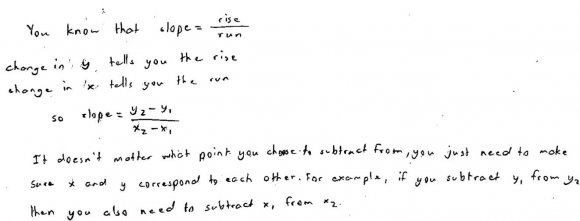 You know that slope = rise/run
change in y tells you the rise
change in x tells you the run
so slope = y₂-y₁/x₂-x₁
It doesn't matter what point you choose to subtract from, you just need to make
sure x and y correspond to each other. For example, if you subtract y₁ from y₂
then you also need to subtract x₁ from x₂.